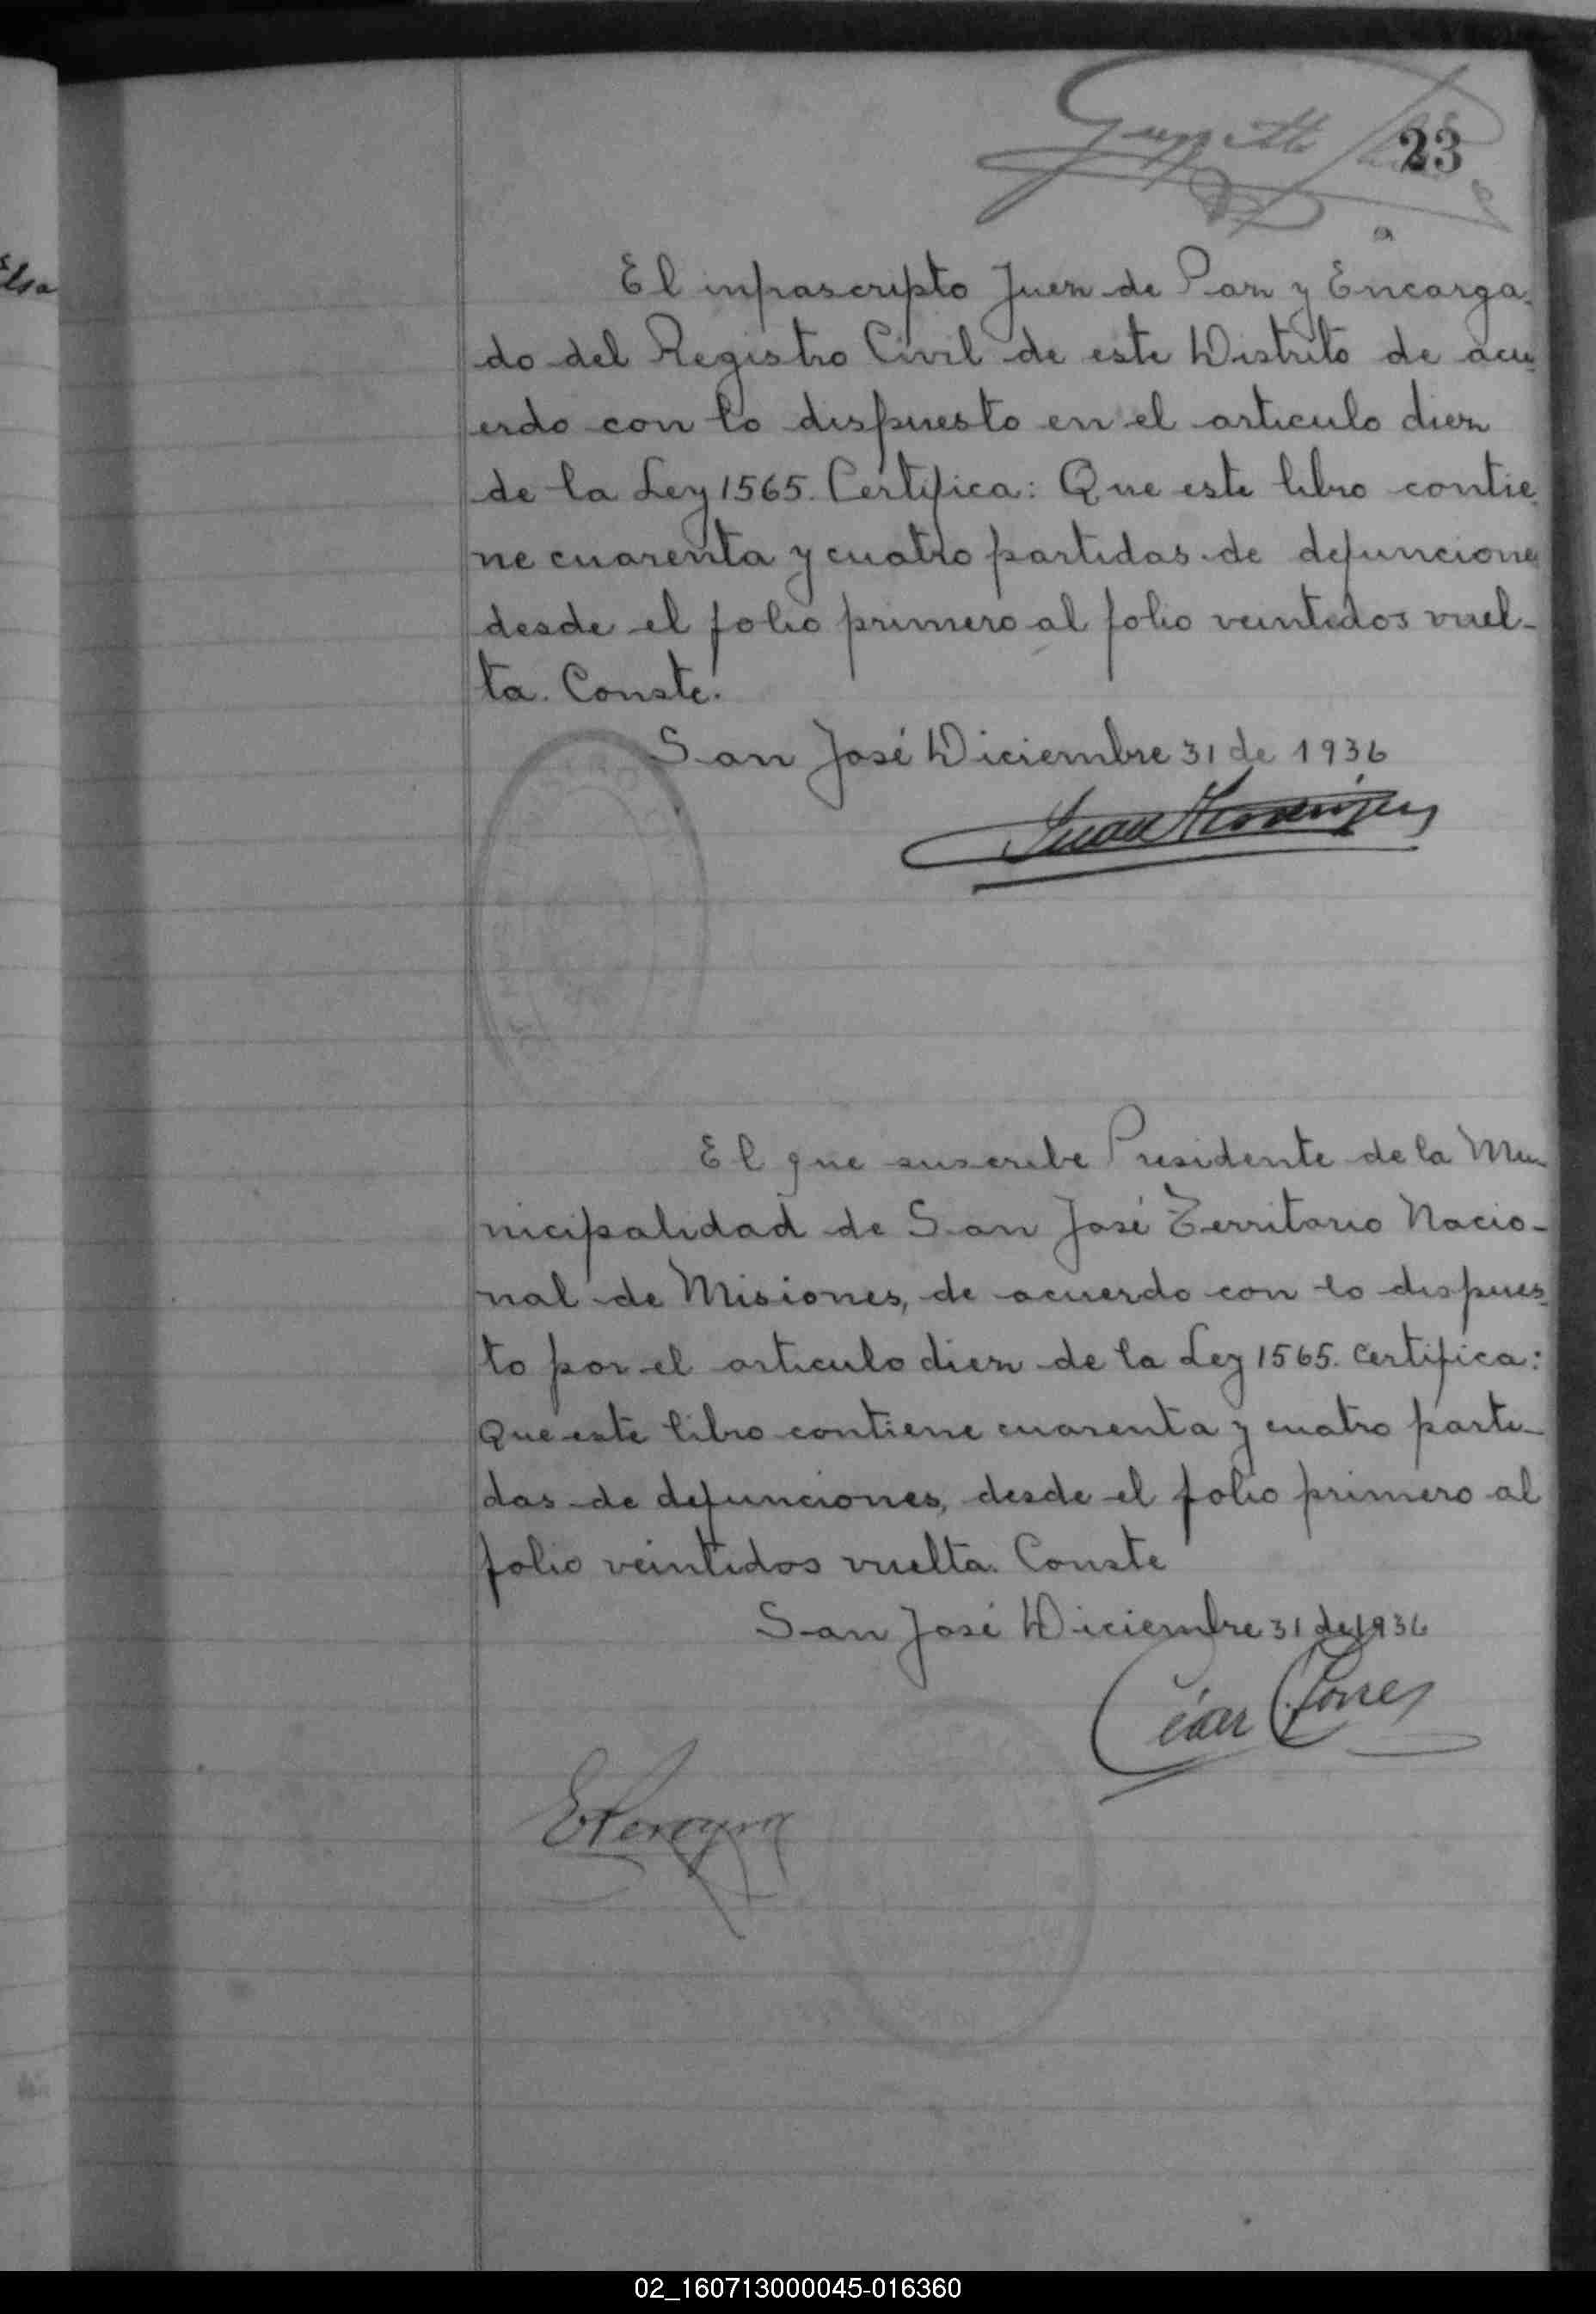 23
Elsa
El infrascripto Juez de Paz y Encarga-
do del Registro Civil de este Distrito de acu-
erdo con lo dispuesto en el articulo diez
de la Ley 1565. Certifica: Que este libro contie-
ne cuarenta y cuatro partidas de defunciones
desde el folio primero al folio veintidos vuel-
ta. Conste.
San José Diciembre 31 de 1936
Juan
El que suscribe Presidente de la Mu-
nicipalidad de San José Territorio Nacio-
nal de Misiones, de acuerdo con lo dispues-
to por el articulo diez de la Ley 1565. Certifica:
Que este libro contiene cuarenta y cuatro parti-
das de defunciones, desde el folio primero al
folio veintidos vuelta. Conste
San José Diciembre 31 de 1936
César Torres
EPereyra
02_160713000045-016360